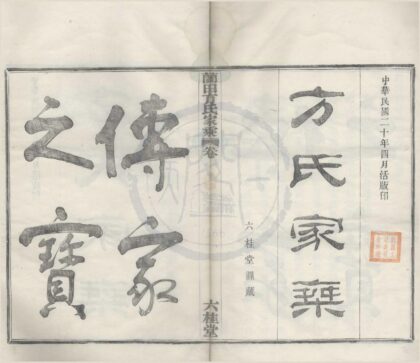 中華民國二十年四月活版印
方氏家椉
六桂堂
蘭田方氏家乘
卷
六桂堂
傳家
之寶